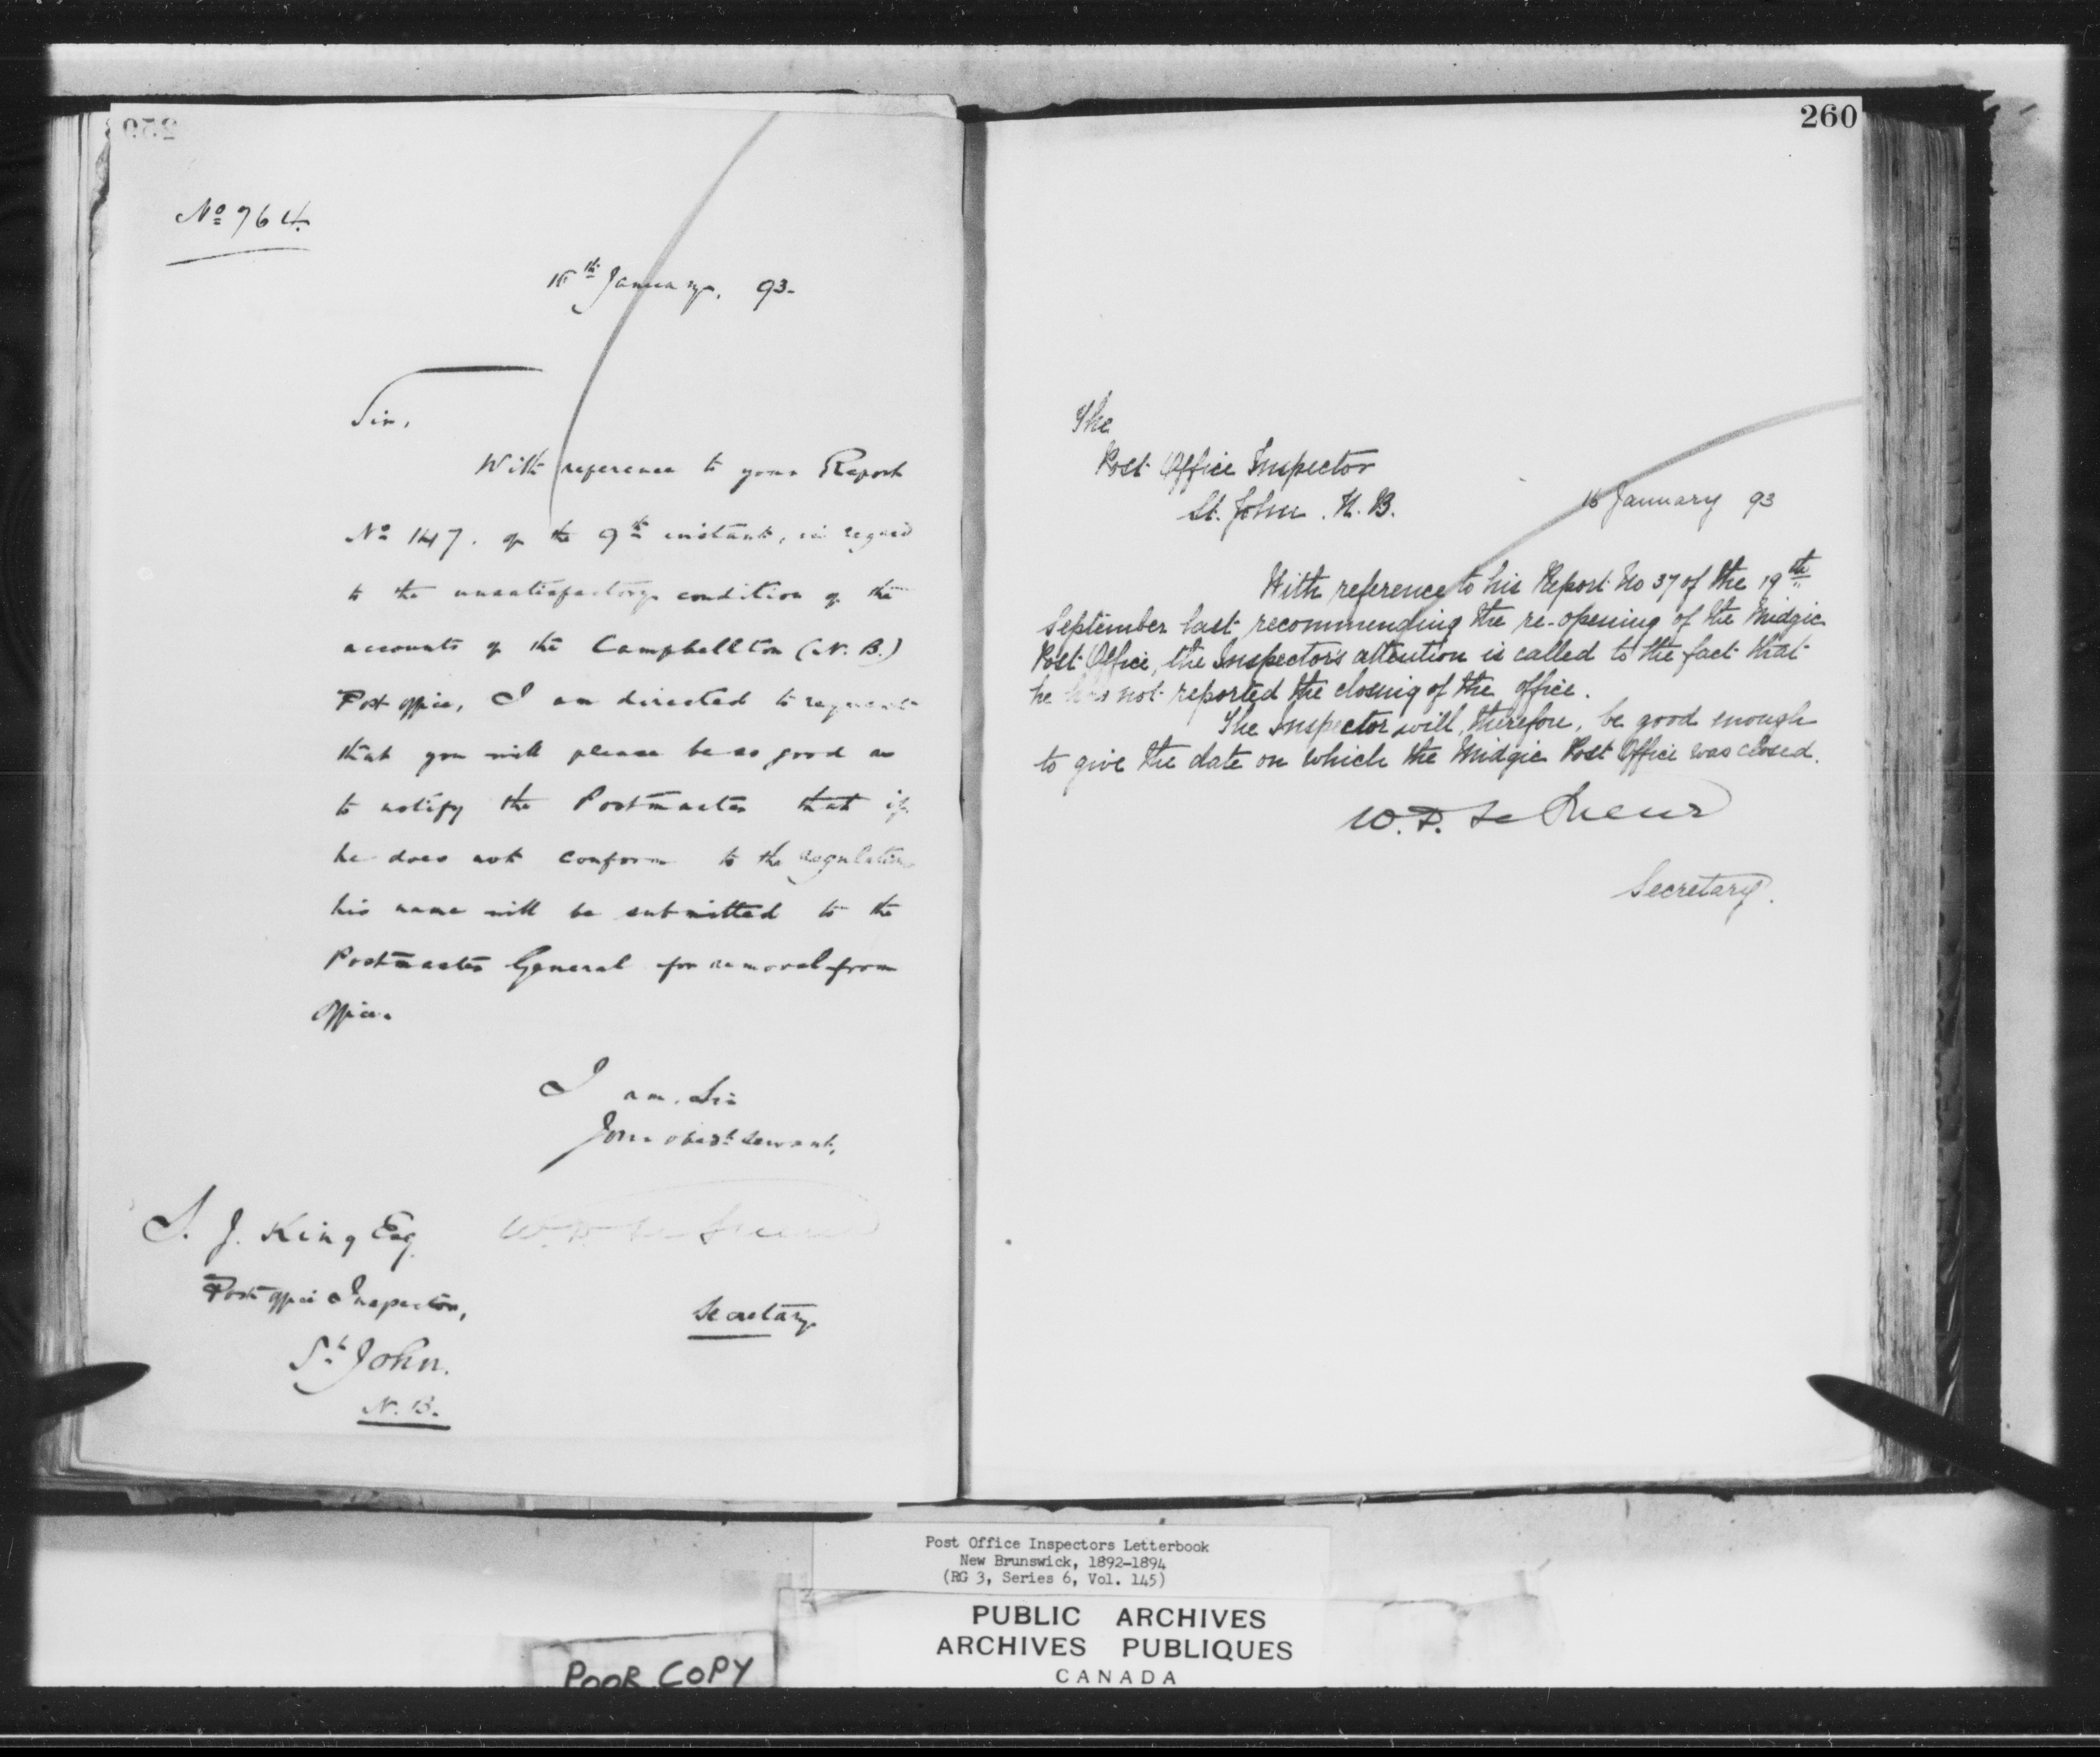 No 764.
January, 93-
Sir,
With reference to your Report
No 147. of the 9th instant, in regard
to the unsatisfactory condition of the
accounts of the Campbellton (N. B.)
Post office, I am directed to request
that you will please be so good as
to notify the Postmaster that if
he does not conform to the regulations
his name will be submitted to the
Postmaster General for removal from
Office.
I am, Sir
Your obedt servant,
S. J. King Esq
Post office Inspector,
St John.
N. B.
Secretary
260
The
Post Office Inspector
St. John. N. B.
January 93
With reference to his Report No 37 of the 19th
September last recommending the re-opening of the Midgic
Post Office, the Inspector's attention is called to the fact that
he has not reported the closing of the office.
The Inspector will, therefore, be good enough
to give the date on which the Midgic Post Office was closed.
W. D. Le Sueur
Secretary.
Post Office Inspectors Letterbook
New Brunswick, 1892-1894
(RG 3, Series 6, Vol. 145)
PUBLIC ARCHIVES
ARCHIVES PUBLIQUES
CANADA
POOR COPY